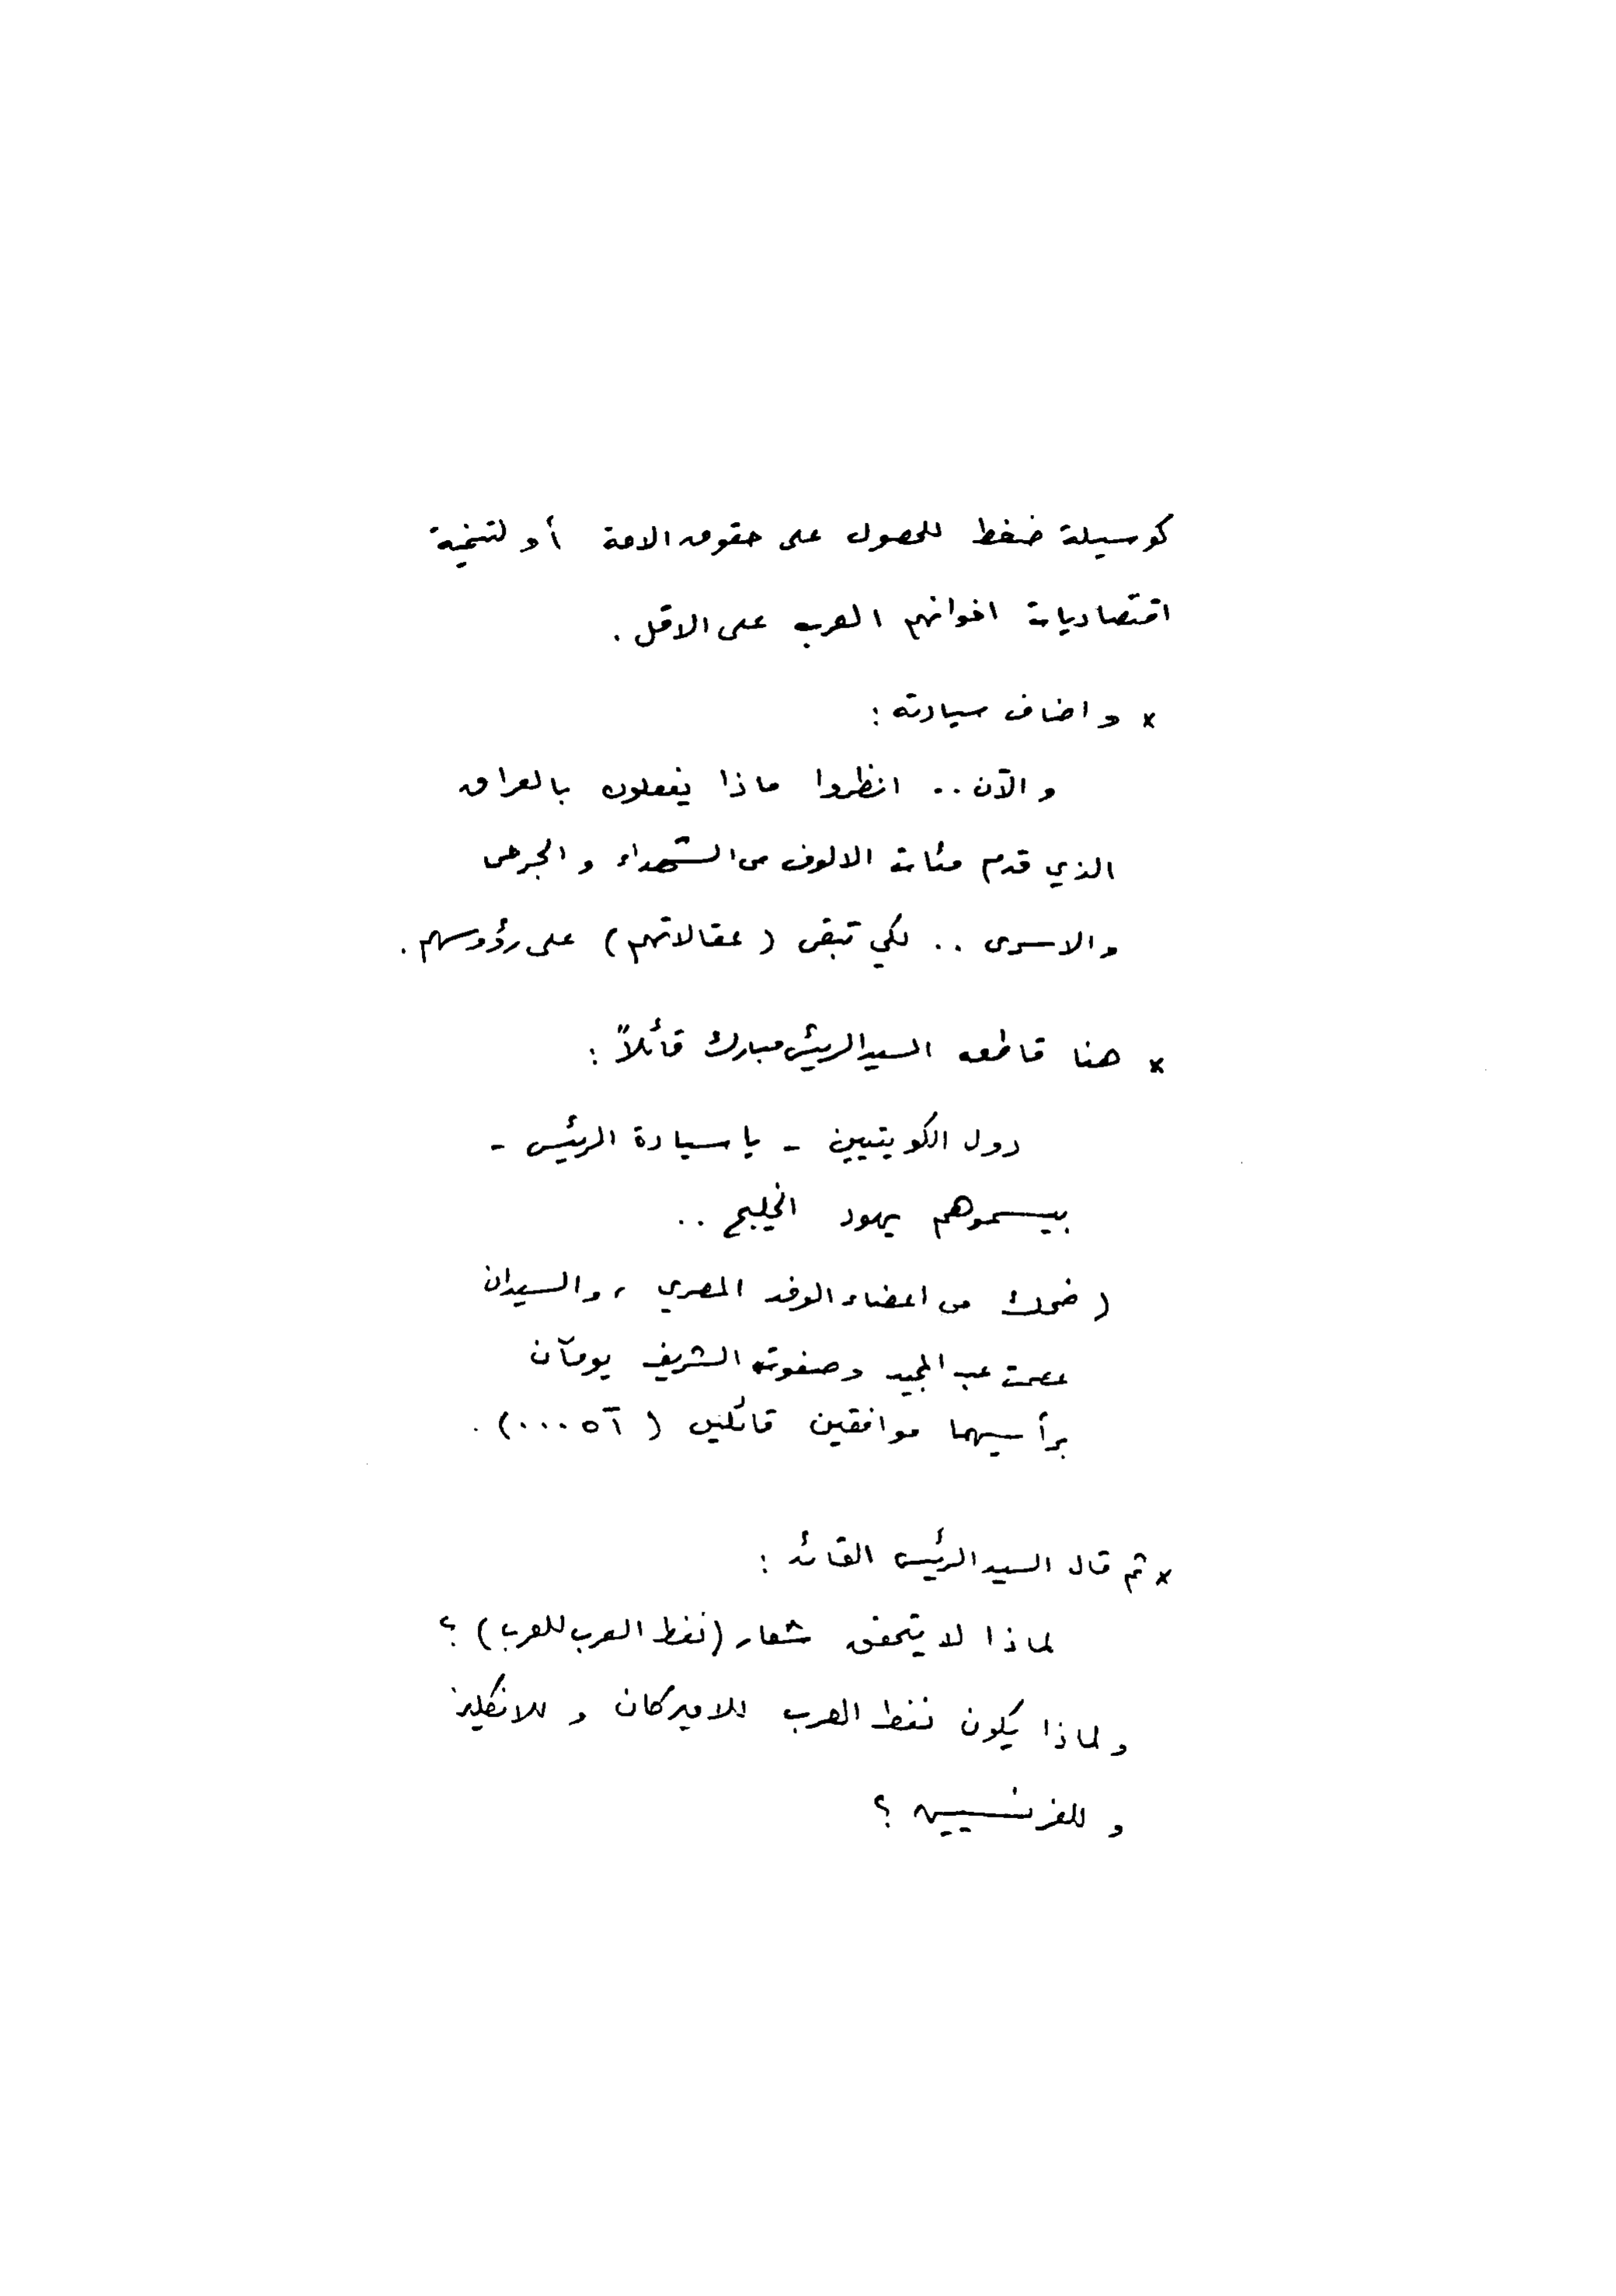 كوسيلة ضغط للحصول على حقوق الامة أو لتنمية
اقتصاديات اخوانهم العرب على الاقل .
× واضاف سيادته :
والآن .. انظروا ماذا يفعلون بالعراق
الذي قدم مئات الالوف من الشهداء والجرحى
والاسرى .. لكي تبقى (عقالاتهم) على رؤوسهم .
× هنا قاطعه السيد الرئيس مبارك قائلاً :
دول الكويتيين - يا سيادة الرئيس -
بيسموهم يهود الخليج ..
(ضحك من اعضاء الوفد المصري ، والسيدان
عصمت عبد المجيد وصفوت الشريف يومآن
برأسيهما موافقين قائلين (آه ...) .
× ثم قال السيد الرئيس القائد :
لماذا لا يتحقق شعار (نفط العرب للعرب) ؟
ولماذا يكون نفط العرب للاميركان وللانكليز
وللفرنسيين ؟